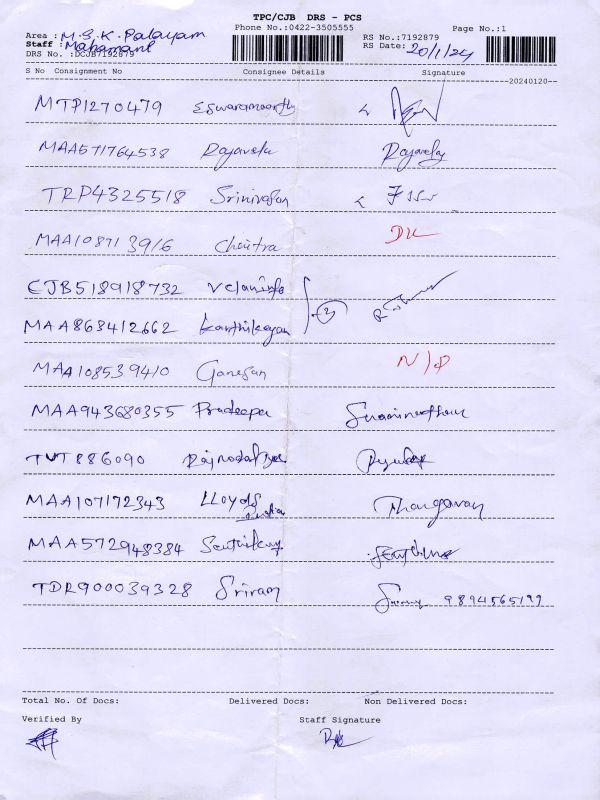 TPC/CJB DRS - PCS
Phone No.:0422-3505555
Page No.:1
Area : M.G.K. Palayam
Staff : Mahamani
RS No.:7192879
DRS No. :DCJB7192879
RS Date: 20/1/24
S No Consignment No Consignee Details Signature
20240120
MTP1270479 Eswaramoorthy
MAA571764538 Rajavelu Rajavelu
TRP4325518 Srinivasan
MAA108713916 Chitra DL
CJB518918732 Velaninfo
MAA863412662 Karthikeyan
MAA108539410 Ganesan N/D
MAA943680355 Pradeepa
TUT886090
MAA107172343 LLoyds Thangavary
MAA572948384
TDR900039328 Sriram
Total No. Of Docs: Delivered Docs: Non Delivered Docs:
Verified By Staff Signature